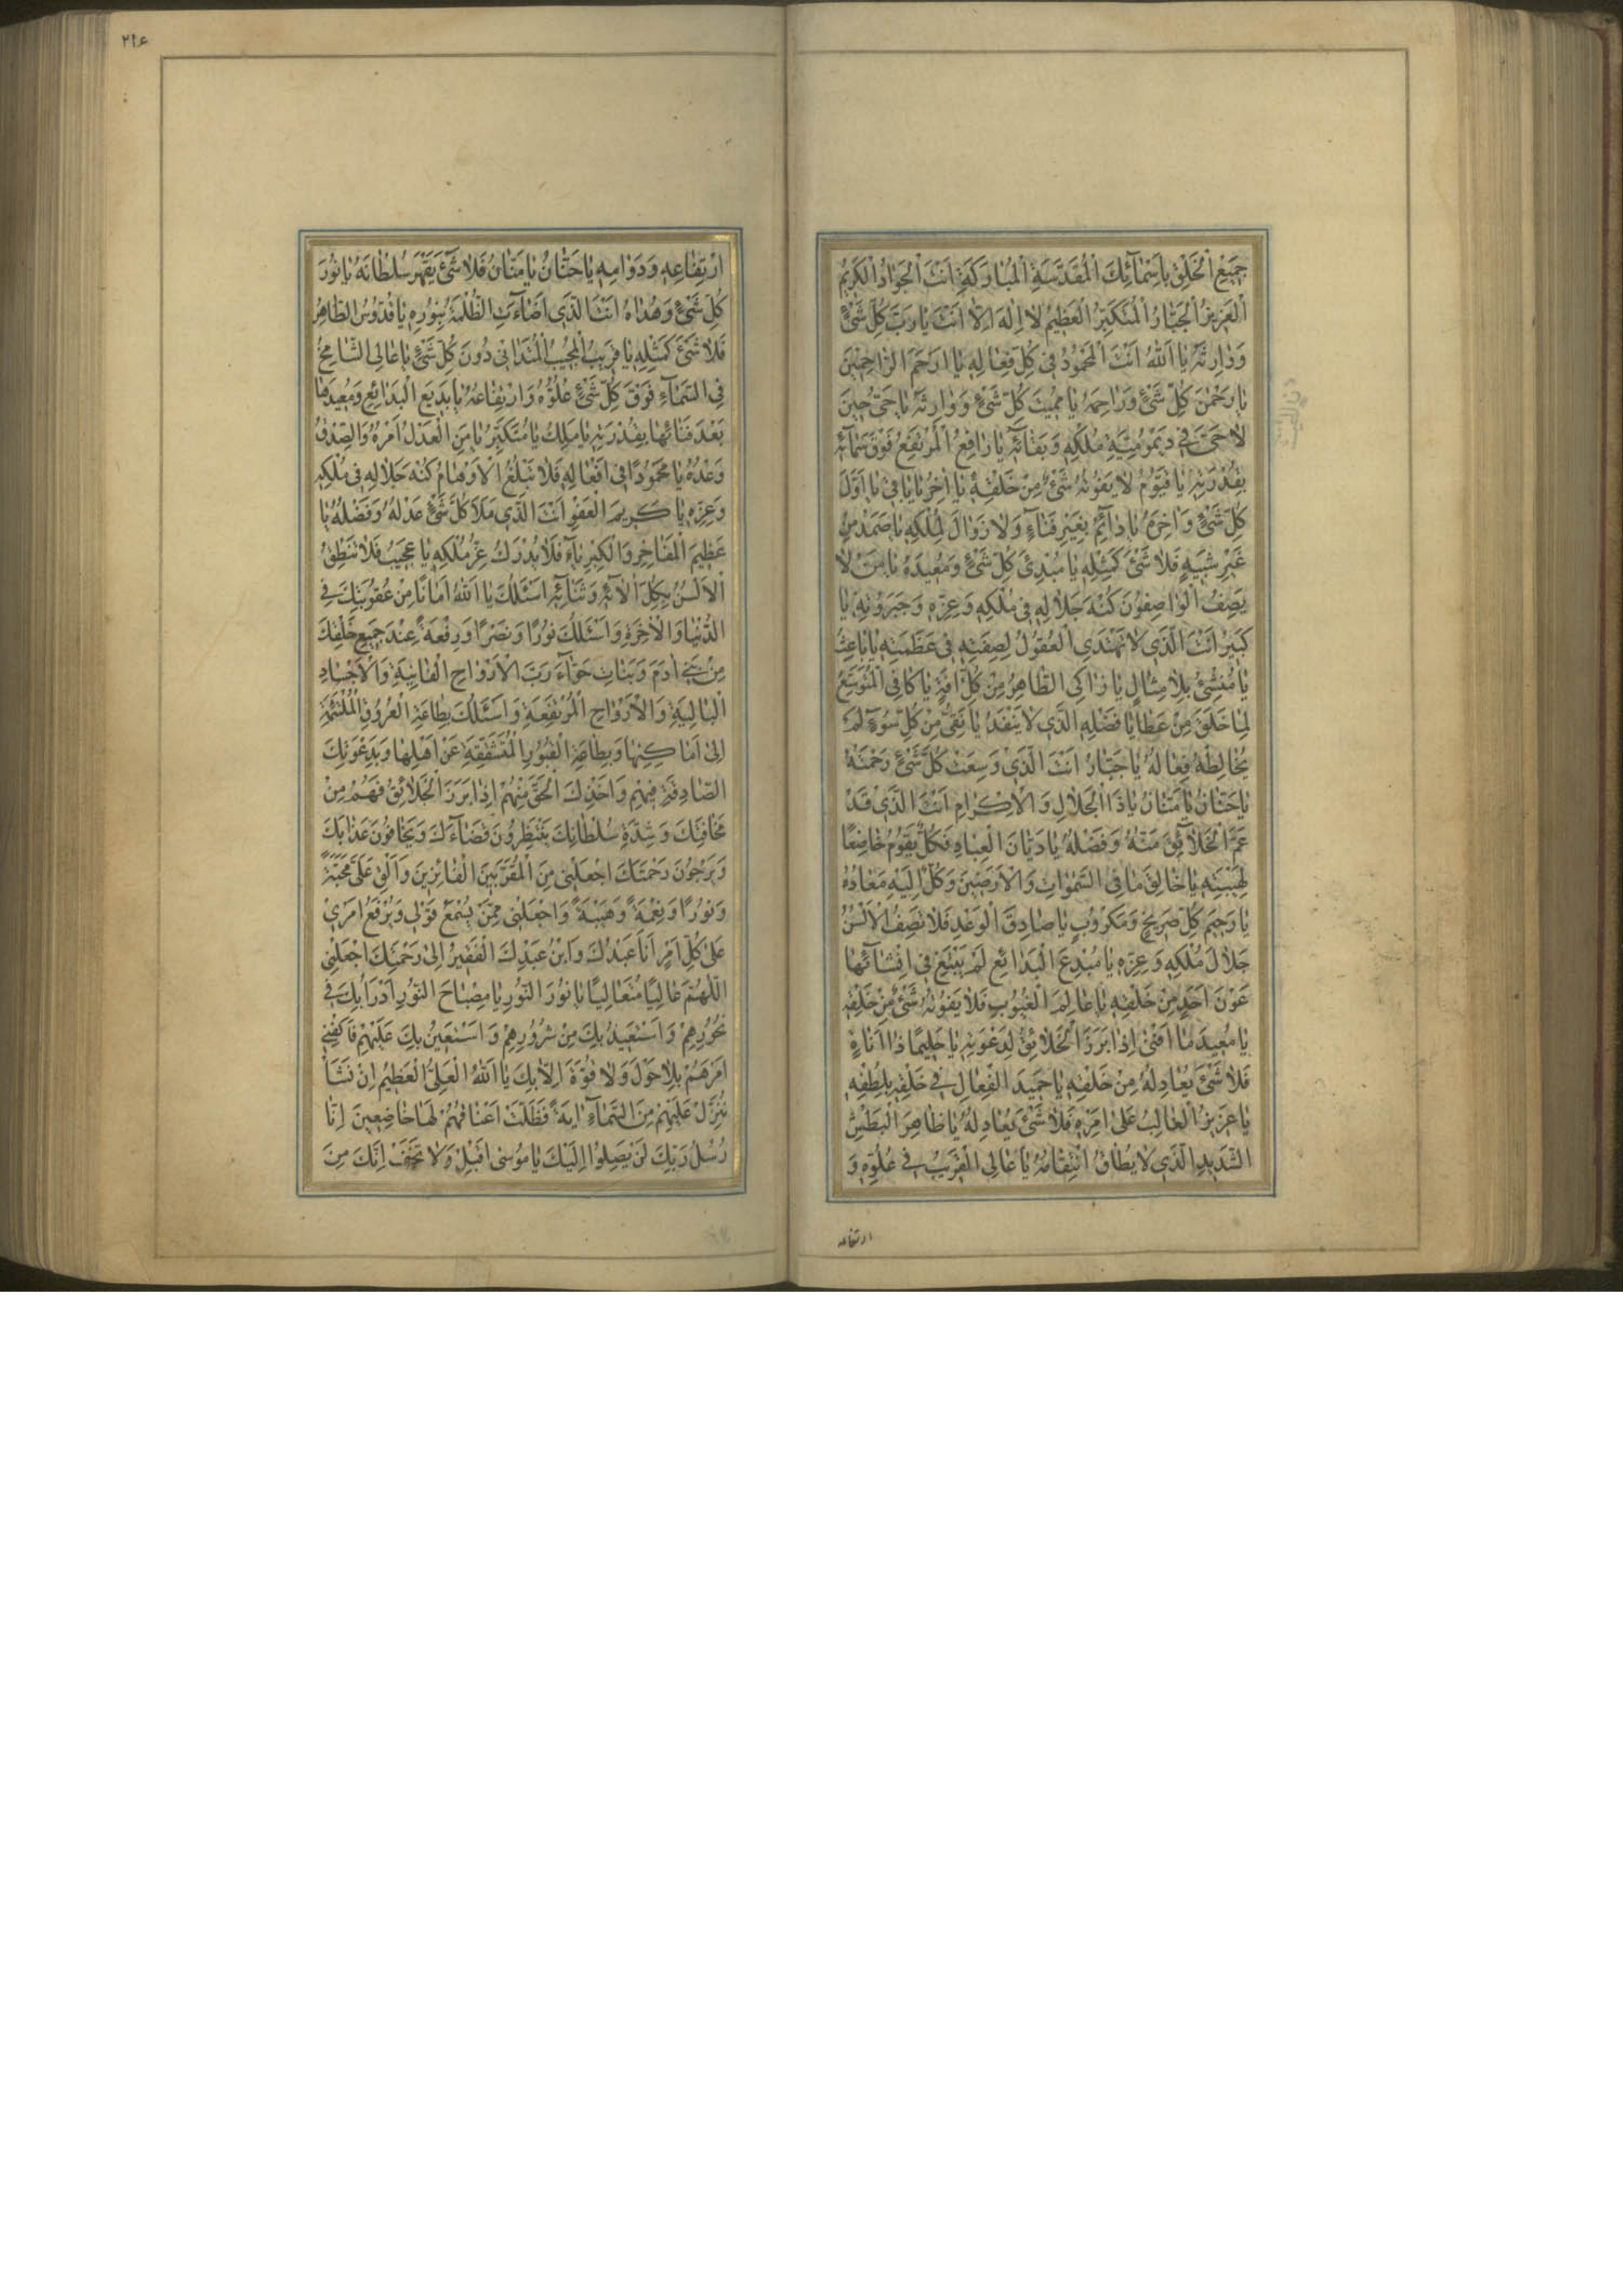 جَمِيعُ الْخَلْقِ بِاَسْمَآئِكَ الْمُقَدَّسَةِ الْمُبَارَكَةِ اَنْتَ الْجَوَادُ الْكَرِيمُ
الْعَزِيزُ الْجَبَّارُ الْمُتَكَبِّرُ الْعَظِيمُ لَا اِلٰهَ اِلَّا اَنْتَ يَا رَبَّ كُلِّ شَيْءٍ
وَوَارِثَهُ يَا اَللّٰهُ اَنْتَ الْمَحْمُودُ فِي كُلِّ فِعَالِهِ يَا اَرْحَمَ الرَّاحِمِينَ
يَا رَحْمٰنَ كُلِّ شَيْءٍ وَرَاحِمَهُ يَا مُمِيتَ كُلِّ شَيْءٍ وَوَارِثَهُ يَا حَيُّ حِينَ
لَا حَيَّ فِي دَيْمُومِيَّةِ مُلْكِهِ وَبَقَائِهِ يَا رَافِعُ الْمُرْتَفِعُ فَوْقَ سَمَائِهِ
بِقُدْرَتِهِ يَا قَيُّومُ لَا يَفُوتُهُ شَيْءٌ مِنْ خَلْقِهِ يَا اٰخِرُ يَا بَاقِي يَا اَوَّلَ
كُلِّ شَيْءٍ وَاٰخِرَهُ يَا دَائِمُ بِغَيْرِ فَنَآءٍ وَلَا زَوَالَ لِمُلْكِهِ يَا صَمَدُ مِنْ
غَيْرِ شَبِيهٍ فَلَا شَيْءَ كَمِثْلِهِ يَا مُبْدِئَ كُلِّ شَيْءٍ وَمُعِيدَهُ يَا مَنْ لَا
يَصِفُ الْوَاصِفُونَ كُنْهَ جَلَالِهِ فِي مُلْكِهِ وَعِزِّهِ وَجَبَرُوتِهِ يَا
كَبِيرُ اَنْتَ الَّذِي لَا تَهْتَدِي الْعُقُولُ لِصِفَتِهِ فِي عَظَمَتِهِ يَا بَاعِثُ
يَا مُنْشِئُ بِلَا مِثَالٍ يَا زَاكِي الطَّاهِرُ مِنْ كُلِّ اٰفَةٍ يَا كَافِي الْمُتَوَسِّعُ
لِمَا خَلَقَ مِنْ عَطَايَا فَضْلِهِ الَّذِي لَا يَنْفَدُ يَا نَقِيُّ مِنْ كُلِّ سُوءٍ لَمْ
يُخَالِطْهُ فِعَالُهُ يَا جَبَّارُ اَنْتَ الَّذِي وَسِعَتْ كُلَّ شَيْءٍ رَحْمَتُهُ
يَا حَنَّانُ يَا مَنَّانُ يَا ذَا الْجَلَالِ وَالْاِكْرَامِ اَنْتَ الَّذِي قَدْ
عَمَّ الْخَلَائِقَ مَنُّهُ وَفَضْلُهُ يَا دَيَّانَ الْعِبَادِ فَكُلٌّ يَقُومُ خَاضِعًا
لِهَيْبَتِهِ يَا خَالِقَ مَا فِي السَّمٰوَاتِ وَالْاَرَضِينَ وَكُلٌّ اِلَيْهِ مَعَادُهُ
يَا رَحِيمَ كُلِّ صَرِيخٍ وَمَكْرُوبٍ يَا صَادِقَ الْوَعْدِ فَلَا تَصِفُ الْاَلْسُنُ
جَلَالَ مُلْكِهِ وَعِزِّهِ يَا مُبْدِعَ الْبَدَائِعِ لَمْ يَبْتَغِ فِي اِنْشَائِهَا
عَوْنَ اَحَدٍ مِنْ خَلْقِهِ يَا عَالِمَ الْغُيُوبِ فَلَا يَفُوتُهُ شَيْءٌ مِنْ خَلْقِهِ
يَا مُعِيدَ مَا اَفْنٰى اِذَا بَرَزَ الْخَلَائِقُ لِدَعْوَتِهِ يَا حَلِيمًا ذَا اَنَاةٍ
فَلَا شَيْءَ يُعَادِلُهُ مِنْ خَلْقِهِ يَا حَمِيدَ الْفِعَالِ فِي خَلْقِهِ بِلُطْفِهِ
يَا عَزِيزُ الْغَالِبُ عَلٰى اَمْرِهِ فَلَا شَيْءَ يُعَادِلُهُ يَا ظَاهِرَ الْبَطْشِ
الشَّدِيدِ الَّذِي لَا يُطَاقُ انْتِقَامُهُ يَا عَالِي الْقَرِيبُ فِي عُلُوِّهِ وَ
ارتفاعه
٢١٤
ارْتِفَاعِهِ وَدَوَامِهِ يَا حَنَّانُ يَا مَنَّانُ فَلَا شَيْءَ يَقْهَرُ سُلْطَانَهُ يَا نُورَ
كُلِّ شَيْءٍ وَهُدَاهُ اَنْتَ الَّذِي اَضَاءَتِ الظُّلْمَةُ بِنُورِهِ يَا قُدُّوسُ الطَّاهِرُ
فَلَا شَيْءَ كَمِثْلِهِ يَا قَرِيبُ الْمُجِيبُ الْمُتَدَانِي دُونَ كُلِّ شَيْءٍ يَا عَالِي الشَّامِخُ
فِي السَّمَآءِ فَوْقَ كُلِّ شَيْءٍ عُلُوُّهُ وَارْتِفَاعُهُ يَا بَدِيعَ الْبَدَائِعِ وَمُعِيدَهَا
بَعْدَ فَنَائِهَا بِقُدْرَتِهِ يَا مَلِكُ يَا مُتَكَبِّرُ يَا مَنِ الْعَدْلُ اَمْرُهُ وَالصِّدْقُ
وَعْدُهُ يَا مَحْمُودًا فِي اَفْعَالِهِ فَلَا تَبْلُغُ الْاَوْهَامُ كُنْهَ جَلَالِهِ فِي مُلْكِهِ
وَعِزِّهِ يَا كَرِيمَ الْعَفْوِ اَنْتَ الَّذِي مَلَأَ كُلَّ شَيْءٍ عَدْلُهُ وَفَضْلُهُ يَا
عَظِيمَ الْمَفَاخِرِ وَالْكِبْرِيَاءِ فَلَا يُدْرَكُ عِزُّ مُلْكِهِ يَا عَجِيبُ فَلَا تَنْطِقُ
الْاَلْسُنُ بِكُلِّ اٰلَائِهِ وَثَنَائِهِ اَسْئَلُكَ يَا اَللّٰهُ اَمَانًا مِنْ عُقُوبَتِكَ فِي
الدُّنْيَا وَالْاٰخِرَةِ وَاَسْئَلُكَ نُورًا وَنَصْرًا وَرِفْعَةً عِنْدَ جَمِيعِ خَلْقِكَ
مِنْ بَنِي اٰدَمَ وَبَنَاتِ حَوَّاءَ رَبَّ الْاَرْوَاحِ الْفَانِيَةِ وَالْاَجْسَادِ
الْبَالِيَةِ وَالْاَرْوَاحِ الْمُرْتَفِعَةِ وَاَسْئَلُكَ بِطَاعَةِ الْعُرُوقِ الْمُلْتَئِمَةِ
اِلٰى اَمَاكِنِهَا وَبِطَاعَةِ الْقُبُورِ الْمُتَشَقِّقَةِ عَنْ اَهْلِهَا وَبِدَعْوَتِكَ
الصَّادِقَةِ فِيهِمْ وَاَخْذِكَ الْحَقَّ مِنْهُمْ اِذَا بَرَزَ الْخَلَائِقُ فَهُمْ مِنْ
مَخَافَتِكَ وَشِدَّةِ سُلْطَانِكَ يَنْتَظِرُونَ قَضَاءَكَ وَيَخَافُونَ عَذَابَكَ
وَيَرْجُونَ رَحْمَتَكَ اجْعَلْنِي مِنَ الْمُقَرَّبِينَ الْفَائِزِينَ وَاَلْقِ عَلَيَّ مَحَبَّةً
وَنُورًا وَنِعْمَةً وَهَيْبَةً وَاجْعَلْنِي مِمَّنْ يُسْمَعُ قَوْلِي وَيُرْفَعُ اَمْرِي
عَلٰى كُلِّ اَمْرٍ اَنَا عَبْدُكَ وَابْنُ عَبْدِكَ الْفَقِيرُ اِلٰى رَحْمَتِكَ اجْعَلْنِي
اللّٰهُمَّ عَالِيًا مُتَعَالِيًا يَا نُورَ النُّورِ يَا مِصْبَاحَ النُّورِ اَدْرَأُ بِكَ فِي
نُحُورِهِمْ وَاَسْتَعِيذُ بِكَ مِنْ شُرُورِهِمْ وَاَسْتَعِينُ بِكَ عَلَيْهِمْ فَاكْفِنِي
اَمْرَهُمْ بِلَا حَوْلَ وَلَا قُوَّةَ اِلَّا بِكَ يَا اَللّٰهُ الْعَلِيُّ الْعَظِيمُ اِنْ نَشَأْ
نُنَزِّلْ عَلَيْهِمْ مِنَ السَّمَآءِ اٰيَةً فَظَلَّتْ اَعْنَاقُهُمْ لَهَا خَاضِعِينَ اِنَّا
رُسُلُ رَبِّكَ لَنْ يَصِلُوا اِلَيْكَ يَا مُوسٰى اَقْبِلْ وَلَا تَخَفْ اِنَّكَ مِنَ